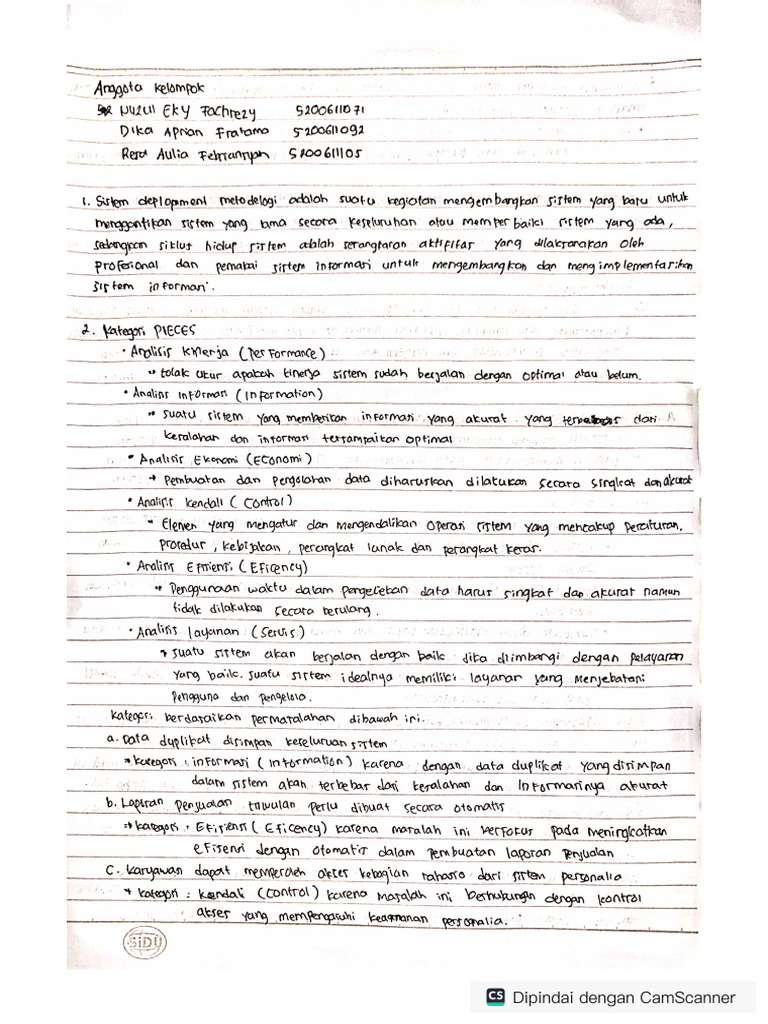 Anggota Kelompok
Nuzul Eky Fachrezy 5200611071
Dika Aprian Pratama 5200611092
Reza Aulia Febriansyah 5200611105
1. Sistem deplopment metodelogi adalah suatu kegiatan mengembangkan sistem yang baru untuk
menggantikan sistem yang lama secara keseluruhan atau memperbaiki sistem yang ada,
sedangkan siklus hidup sistem adalah serangkaian aktifitas yang dilaksanakan oleh
profesional dan pemakai sistem informasi untuk mengembangkan dan mengimplementasikan
sistem informasi.
2. Kategori PIECES
• Analisis Kinerja (Performance)
→ tolak ukur apakah kinerja sistem sudah berjalan dengan optimal atau belum.
• Analisis Informasi (Information)
→ suatu sistem yang memberikan informasi yang akurat yang terbebas dari
kesalahan dan informasi tersampaikan optimal
• Analisis Ekonomi (Economi)
→ Pembuatan dan pengolahan data diharuskan dilakukan secara singkat dan akurat
• Analisis Kendali (Control)
→ Elemen yang mengatur dan mengendalikan operasi sistem yang mencakup peraturan,
prosedur, kebijakan, perangkat lunak dan perangkat keras.
• Analisis Efisiensi (Eficency)
→ Penggunaan waktu dalam pengecekan data harus singkat dan akurat namun
tidak dilakukan secara berulang.
• Analisis layanan (Servis)
→ suatu sistem akan berjalan dengan baik jika diimbangi dengan pelayanan
yang baik. suatu sistem idealnya memiliki layanan yang menjebatani
pengguna dan pengelola.
Kategori berdasarkan permasalahan dibawah ini.
a. Data duplikat disimpan keseluruan sistem
→ Kategori : informasi (Information) karena dengan data duplikat yang disimpan
dalam sistem akan terbebar dari kesalahan dan informasinya akurat
b. Laporan Penjualan triwulan perlu dibuat secara otomatis
→ Kategori : Efisiensi (Eficency) karena masalah ini berfokus pada meningkatkan
efisensi dengan otomatis dalam pembuatan laporan penjualan
C. Karyawan dapat memperoleh akses kebagian rahasia dari sistem personalia
→ kategori : Kendali (Control) karena masalah ini berhubungan dengan kontrol
akses yang mempengaruhi keamanan personalia.
SiDU
CS Dipindai dengan CamScanner